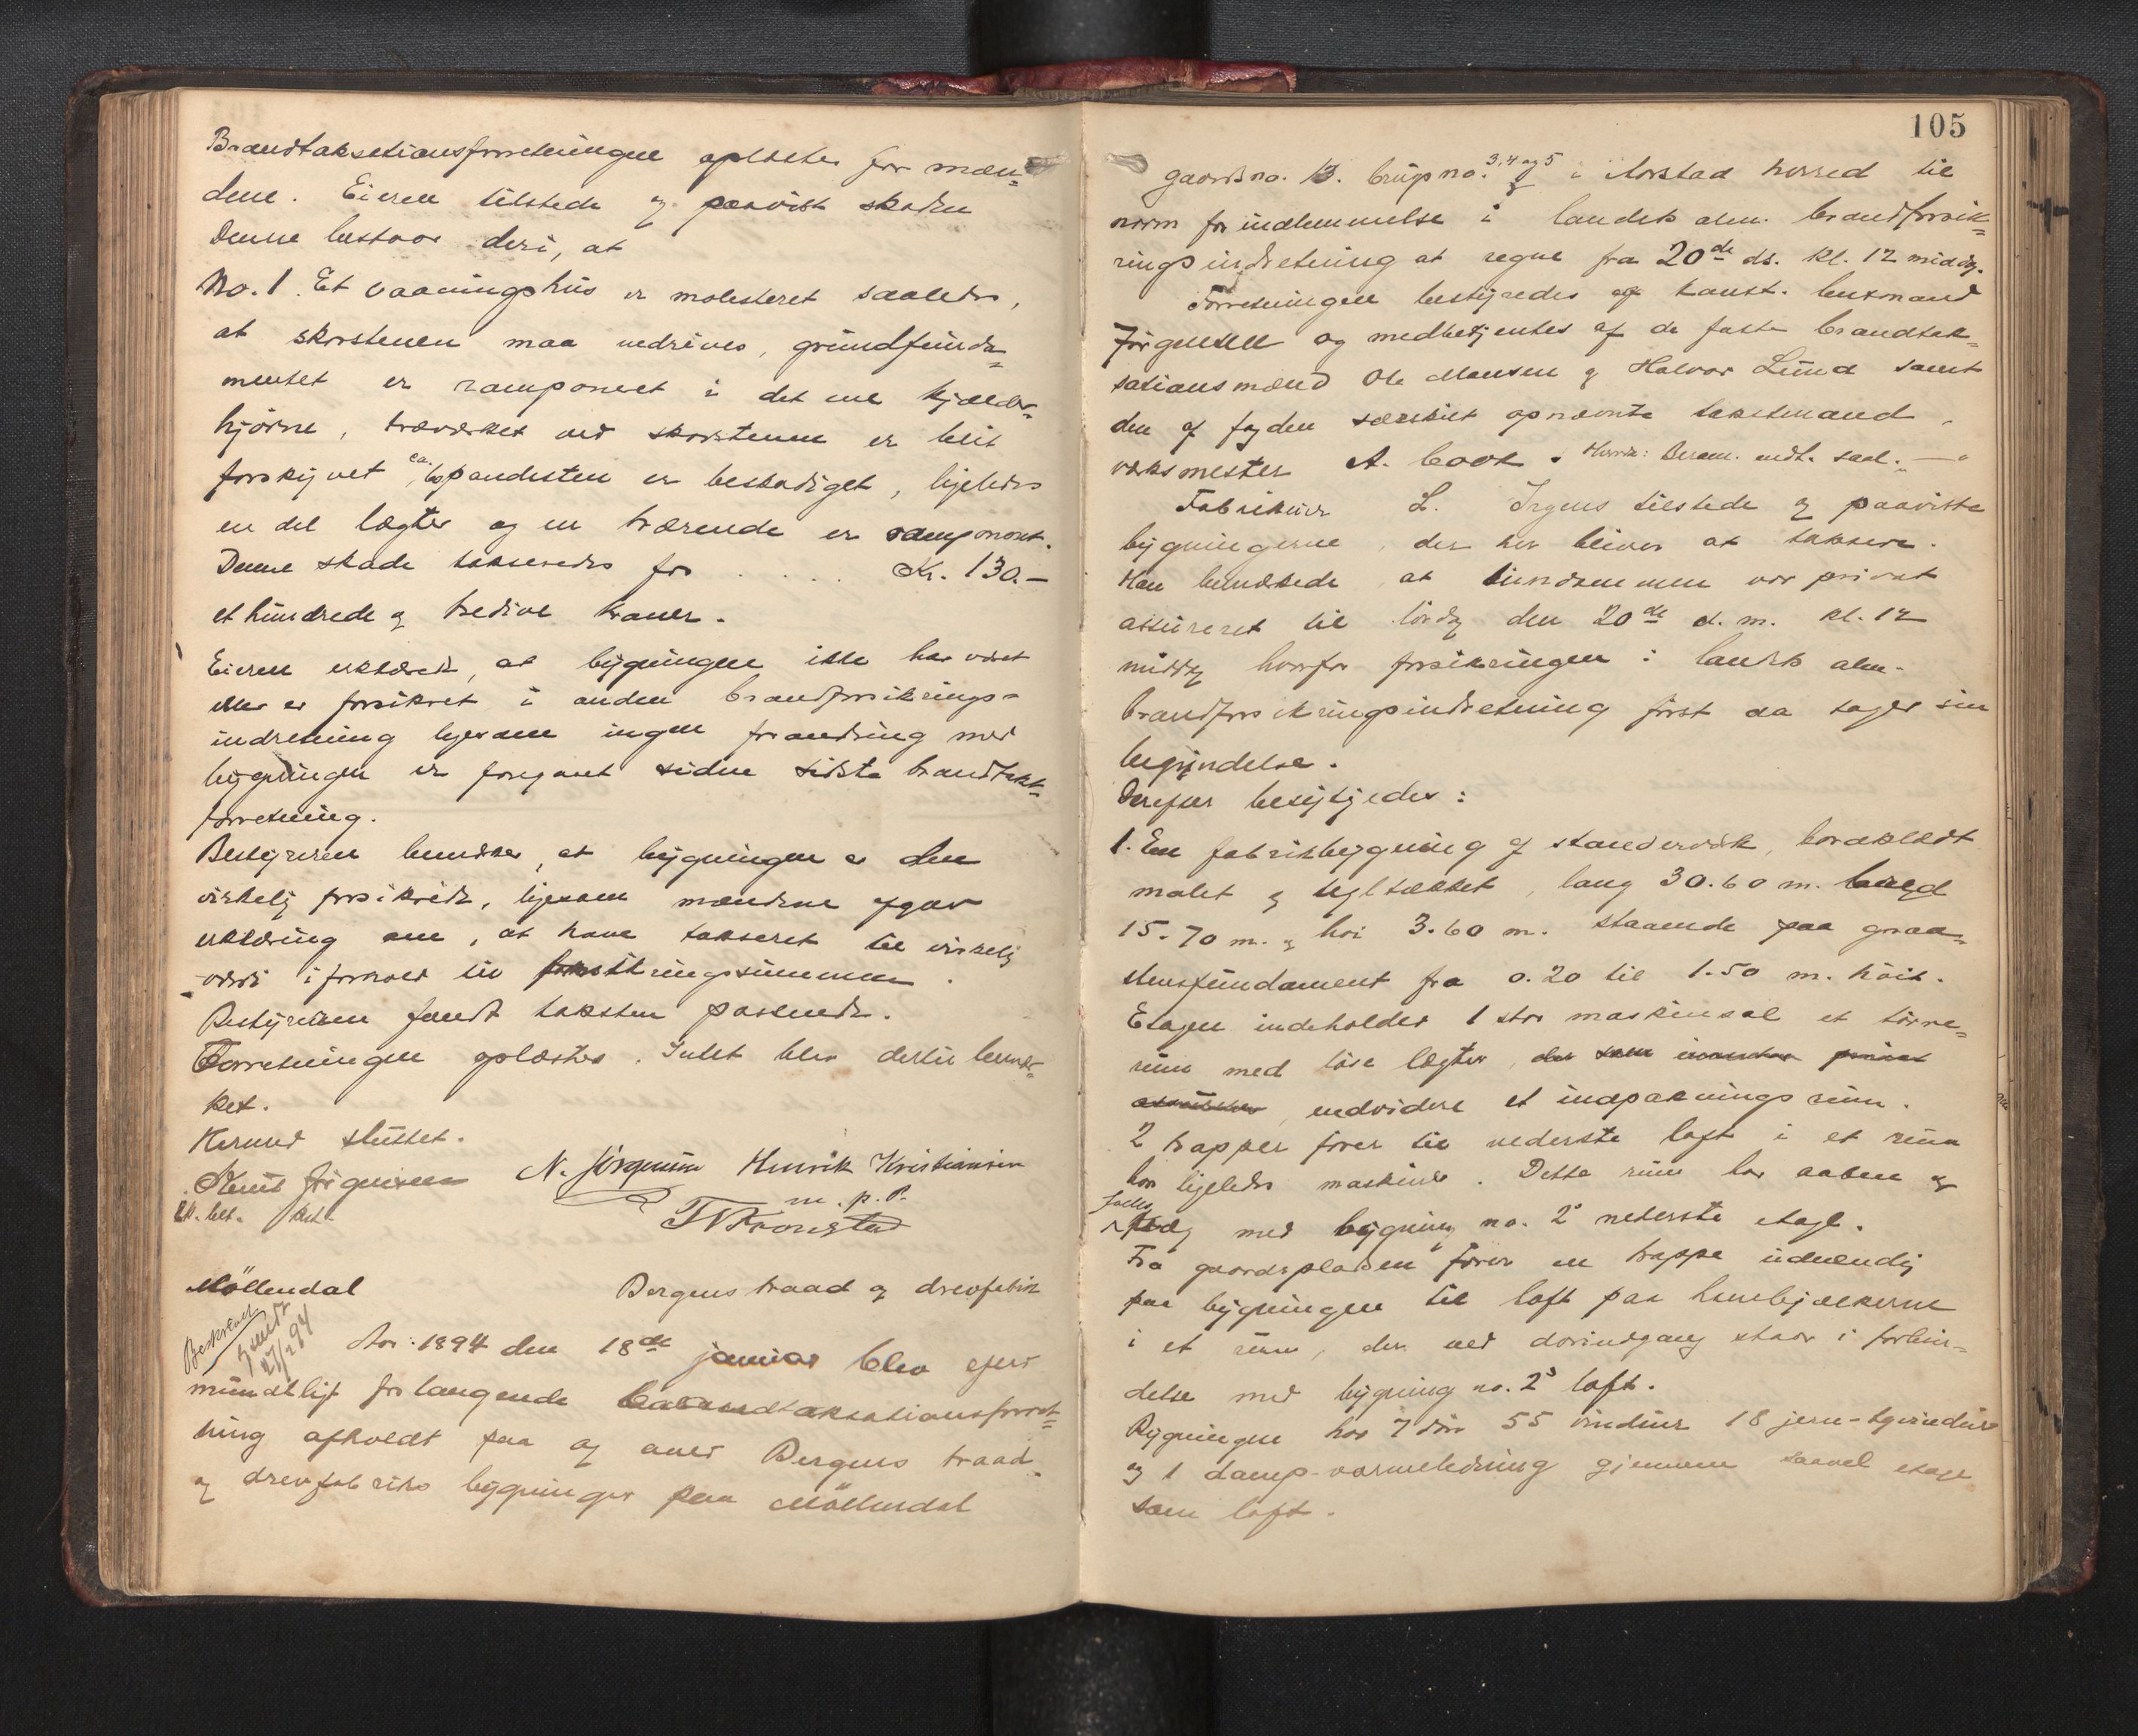 Brandtaksationsforretningen oplæstes for mæn=
dene. Eieren tilstede og paavist skaden
Denne bestaar deri, at
No. 1. Et vaaningshus er molesteret saaledes,
at skorstenen maa nedrives, grundfunda=
mentet er ramponert i det ene kjælder=
hjörne, træværket ved skorstenen er blit
forskjyvet, ca. pandesten er beskadiget, ligeledes
en del lægter og en tværende er ramponert.
Denne skade takseredes for . . . . Kr. 130.—
et hundrede og tredive kroner.
Eieren erklærede, at bygningen ikke har været
eller er forsikret i anden brandforsikrings=
indretning ligesom ingen forandring med
bygningen er foregaaet siden sidste brandtakst=
forretning.
Bestyreren bemærker, at bygningen er den
virkelig forsikrede, ligesom mændene afgav
erklæring om, at have takseret til virkelig
værdi i forhold til forsikringssummen.
Bestyreren fandt taksten passende.
Forretningen oplæstes. Intet blev dertil bemær=
ket.
Hermed sluttet.
Knut Jörgensen N. Jörgensen Henrik Kristiansen
m. p. P.
T Kronstad
Möllendal Bergens traad og drevfabrik
Beskrevet
27/2 94
Aar 1894 den 18de januar blev efter
mundtligt forlangende brandtaksationsforret=
ning afholdt paa og over Bergens traad
og drevfabriks bygninger paa Möllendal
105
gaardsno. 13. brugsno. 3, 4 og 5 i Aarstad herred til
norm for indlemmelse i landets alm. brandforsik=
ringsindretning at regne fra 20de ds. kl. 12 middag.
Forretningen bestyredes af konst. lensmand
Jörgensen og medbetjentes af de faste brandtak=
sationsmænd Ole Monsen og Halvor Lund samt
den af fogden særskilt opnævnte takstmand,
værksmester A. Cook.
Fabrikeier L. Irgens tilstede og paaviste
bygningerne, der her bliver at taksere.
Han bemærkede at eiendommen var privat
assureret til lördag den 20de d. m. kl. 12
middag hvorfor forsikringen i landets alm.
brandforsikringsindretning först da tager sin
begyndelse.
Derefter besigtigedes:
1. En fabrikbygning af standerværk, bordklædt
malet og teglstækket, lang 30.60 m. bred
15.70 m. og höi 3.60 m. staaende paa graa=
stensfundament fra 0.20 til 1.50 m. höit.
Etagen indeholder 1 stor maskinsal et törre=
rum med löse lægter, endvidere et indpakningsrum.
2 trapper förer til nederste loft i et rum
her ligeledes maskiner. Dette rum har aaben og
fælles med bygning no. 2s nederste etage.
Fra gaardspladsen förer en trappe udvendig
paa bygningen til loft paa hanebjælkerne
i et rum, der ved dörindgang staar i forbin=
delse med bygning no. 2s loft.
Bygningen har 7 dör 55 vinduer 18 jern-tagvinduer
og 1 damp-varmeledning gjennem saavel etage
som loft.